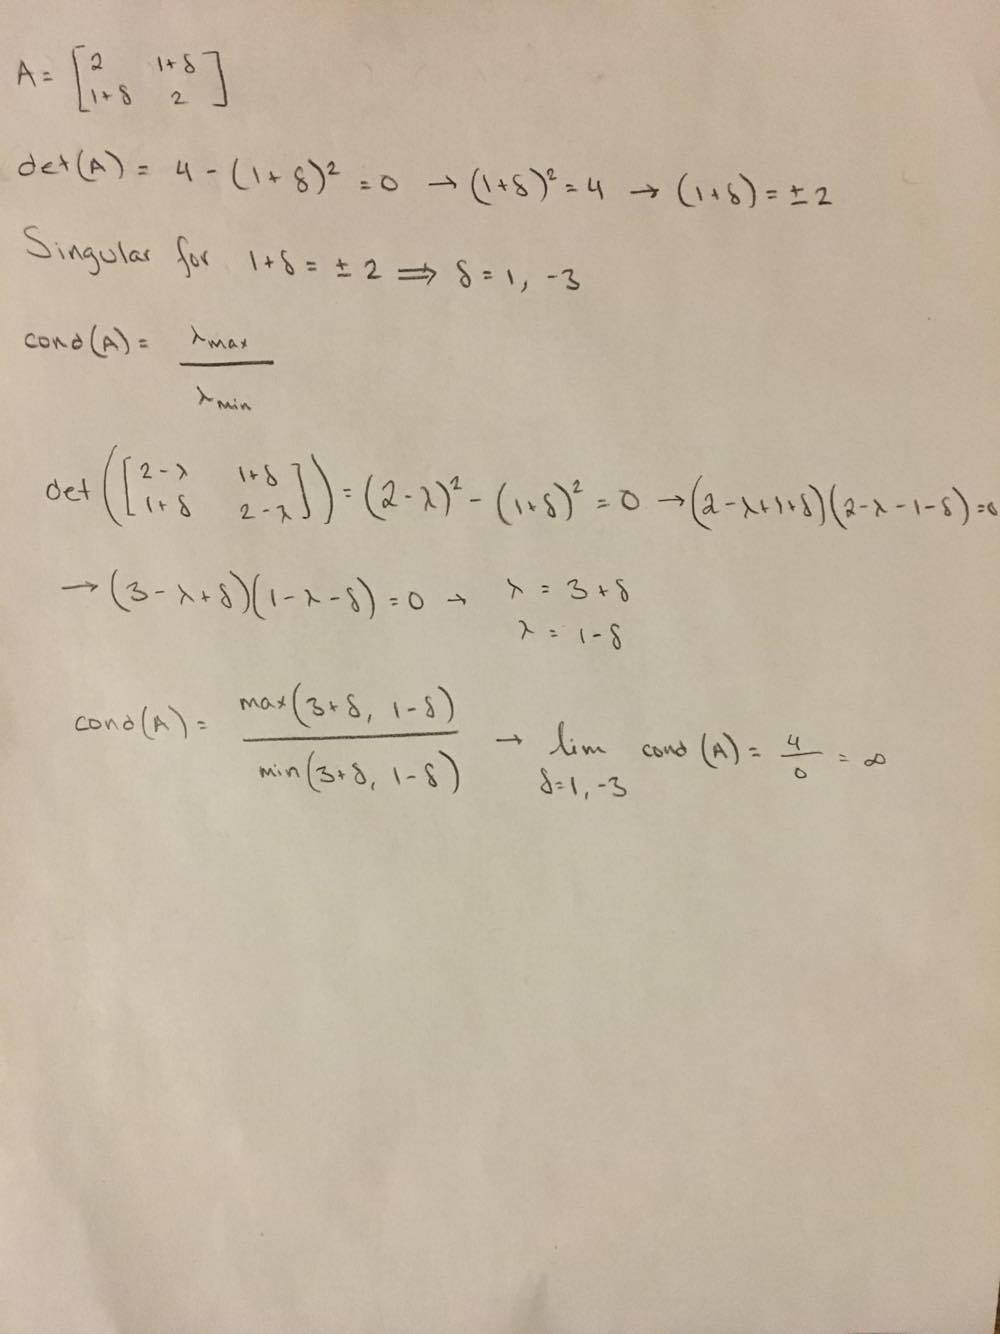 A = [2 1+δ
1+δ 2]
det(A) = 4 - (1+δ)² = 0 → (1+δ)² = 4 → (1+δ) = ±2
Singular for 1+δ = ±2 ⟹ δ = 1, -3
cond(A) = λmax / λmin
det([2-λ 1+δ
1+δ 2-λ]) = (2-λ)² - (1+δ)² = 0 → (2-λ+1+δ)(2-λ-1-δ)=0
→ (3-λ+δ)(1-λ-δ) = 0 → λ = 3+δ
λ = 1-δ
cond(A) = max(3+δ, 1-δ) / min(3+δ, 1-δ) → lim δ=1, -3 cond(A) = 4/0 = ∞